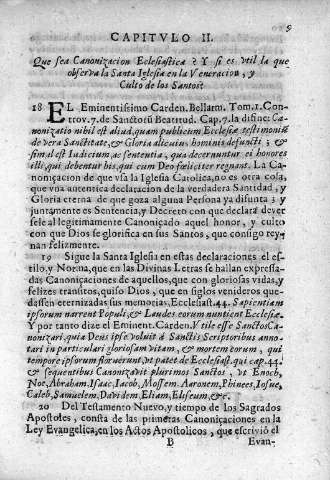 9
CAPITVLO II.
Que sea Canonizacion Eclesiastica? Y si es vtil la que
observa la Santa Iglesia en la Veneracion, y
Culto de los Santos?
18 EL Eminentissimo Carden. Bellarm. Tom. 1. Con-
trov. 7. de Sanctorũ Beatitud. Cap. 7. la difine: Ca-
nonizatio nihil est aliud, quam publicum Ecclesiæ testimoniũ
de vera Sanctitate, & Gloria alicuius hominis defuncti; &
simul est Iudicium ac sententia, qua decernuntur ei honores
illi, qui debentur his, qui cum Deo feliciter regnant. La Ca-
nonizacion de que vsa la Iglesia Catolica, no es otra cosa,
que vna autentica declaracion de la verdadera Santidad, y
Gloria eterna de que goza alguna Persona ya difunta; y
juntamente es Sentencia, y Decreto con que declara dever
sele al legitimamente Canoniçado aquel honor, y culto
con que Dios se glorifica en sus Santos, que consigo rey-
nan felizmente.
19 Sigue la Santa Iglesia en estas declaraciones el es-
tilo, y Norma, que en las Divinas Letras se hallan expressa-
das Canoniçaciones de aquellos, que con gloriosas vidas, y
felizes transitos, quiso Dios, que en siglos venideros que-
dassen eternizadas sus memorias, Ecclesiast. 44. Sapientiam
ipsorum narrent Populi, & Laudes eorum nuntient Ecclesiæ.
Y por tanto dize el Eminent. Carden. Vtile esse Sanctos Ca-
nonizari, quia Deus ipse voluit à Sanctis Scriptoribus anno-
tari in particulari gloriosam vitam, & mortem eorum, qui
tempore ipsorum floruerunt, vt patet de Ecclesiast. qui cap. 44.
& sequentibus Canonizavit plurimos Sanctos, vt Enoch,
Noe, Abraham, Isaac, Iacob, Mossem, Aaronem, Phinees, Iosue,
Caleb, Samuelem, Davidem, Eliam, Eliseum, &c.
20 Del Testamento Nuevo, y tiempo de los Sagrados
Apostoles, consta de las primeras Canoniçaciones en la
Ley Evangelica, en los Actos Apostolicos, que escrivió el
B Evan-